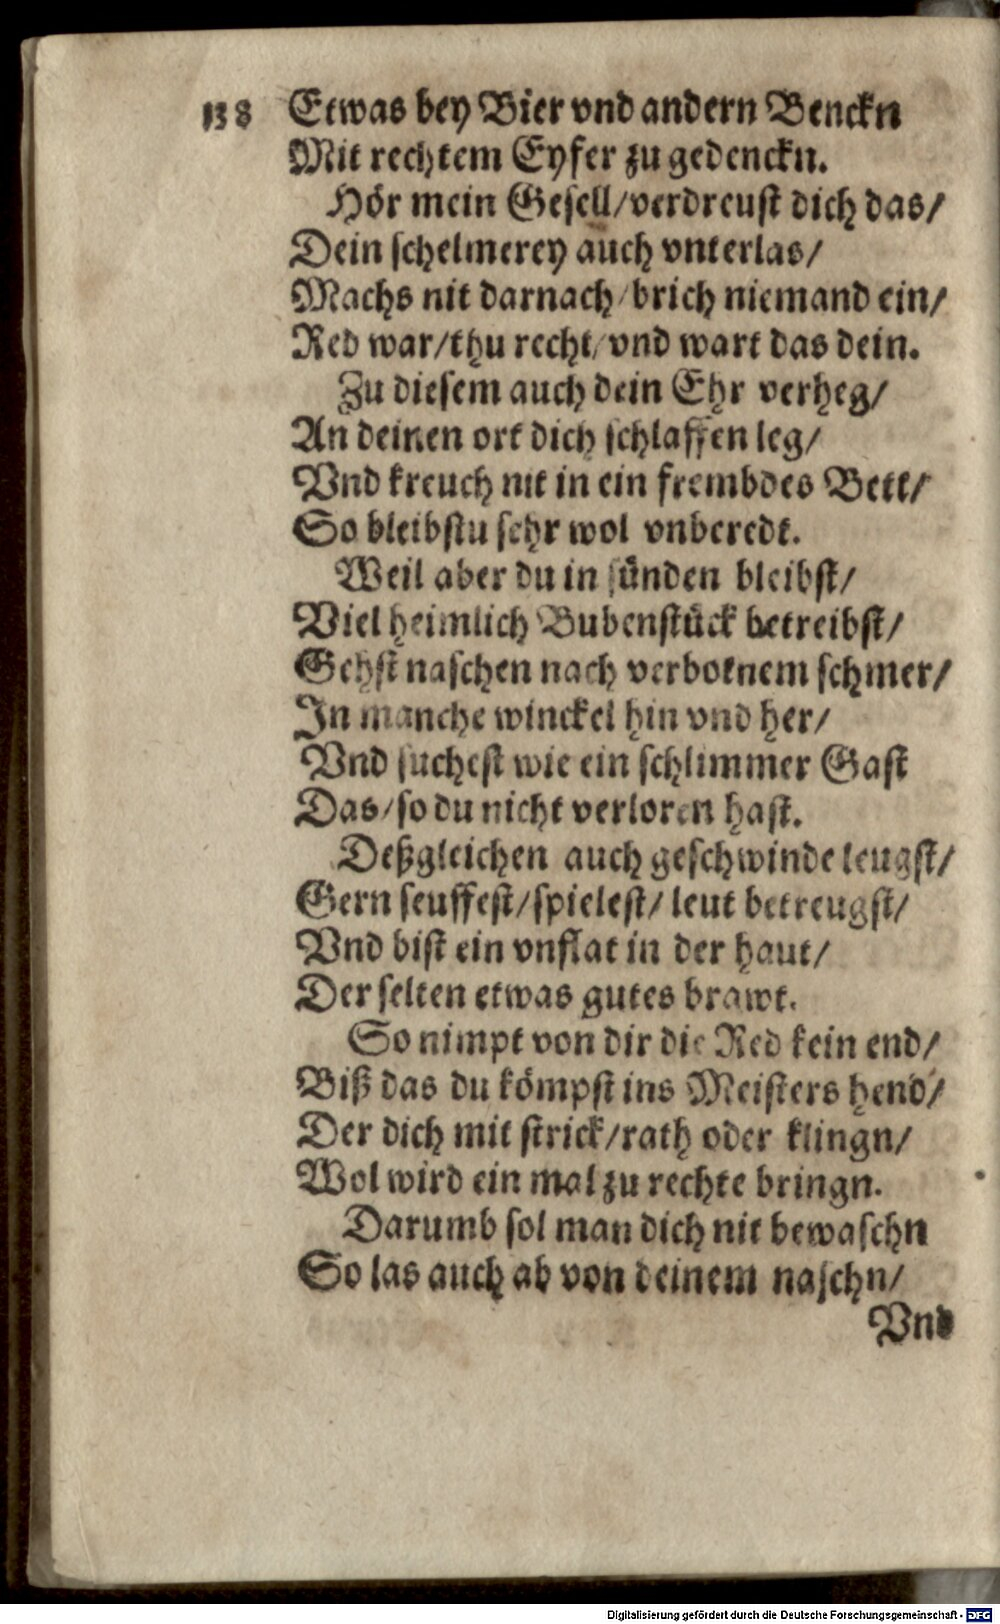 138 Etwas bey Bier vnd andern Benckn
Mit rechtem Eyfer zu gedenckn.
Hör mein Gesell/verdreust dich das/
Dein schelmerey auch vnterlas/
Machs nit darnach/brich niemand ein/
Red war/thu recht/vnd wart das dein.
Zu diesem auch dein Ehr verheg/
An deinen ort dich schlaffen leg/
Vnd kreuch nit in ein frembdes Bett/
So bleibstu sehr wol vnberedt.
Weil aber du in sünden bleibst/
Viel heimlich Bubenstück betreibst/
Gehst naschen nach verbotnem schmer/
In manche winckel hin vnd her/
Vnd suchest wie ein schlimmer Gast
Das/so du nicht verloren hast.
Deßgleichen auch geschwinde leugst/
Gern seuffest/spielest/leut betreugst/
Vnd bist ein vnflat in der haut/
Der selten etwas gutes brawt.
So nimpt von dir die Red kein end/
Biß das du kömpst ins Meisters hend/
Der dich mit strick/rath oder klingn/
Wol wird ein mal zu rechte bringn.
Darumb sol man dich nit bewaschn
So las auch ab von deinem naschn/
Vnd
Digitalisierung gefördert durch die Deutsche Forschungsgemeinschaft - DFG